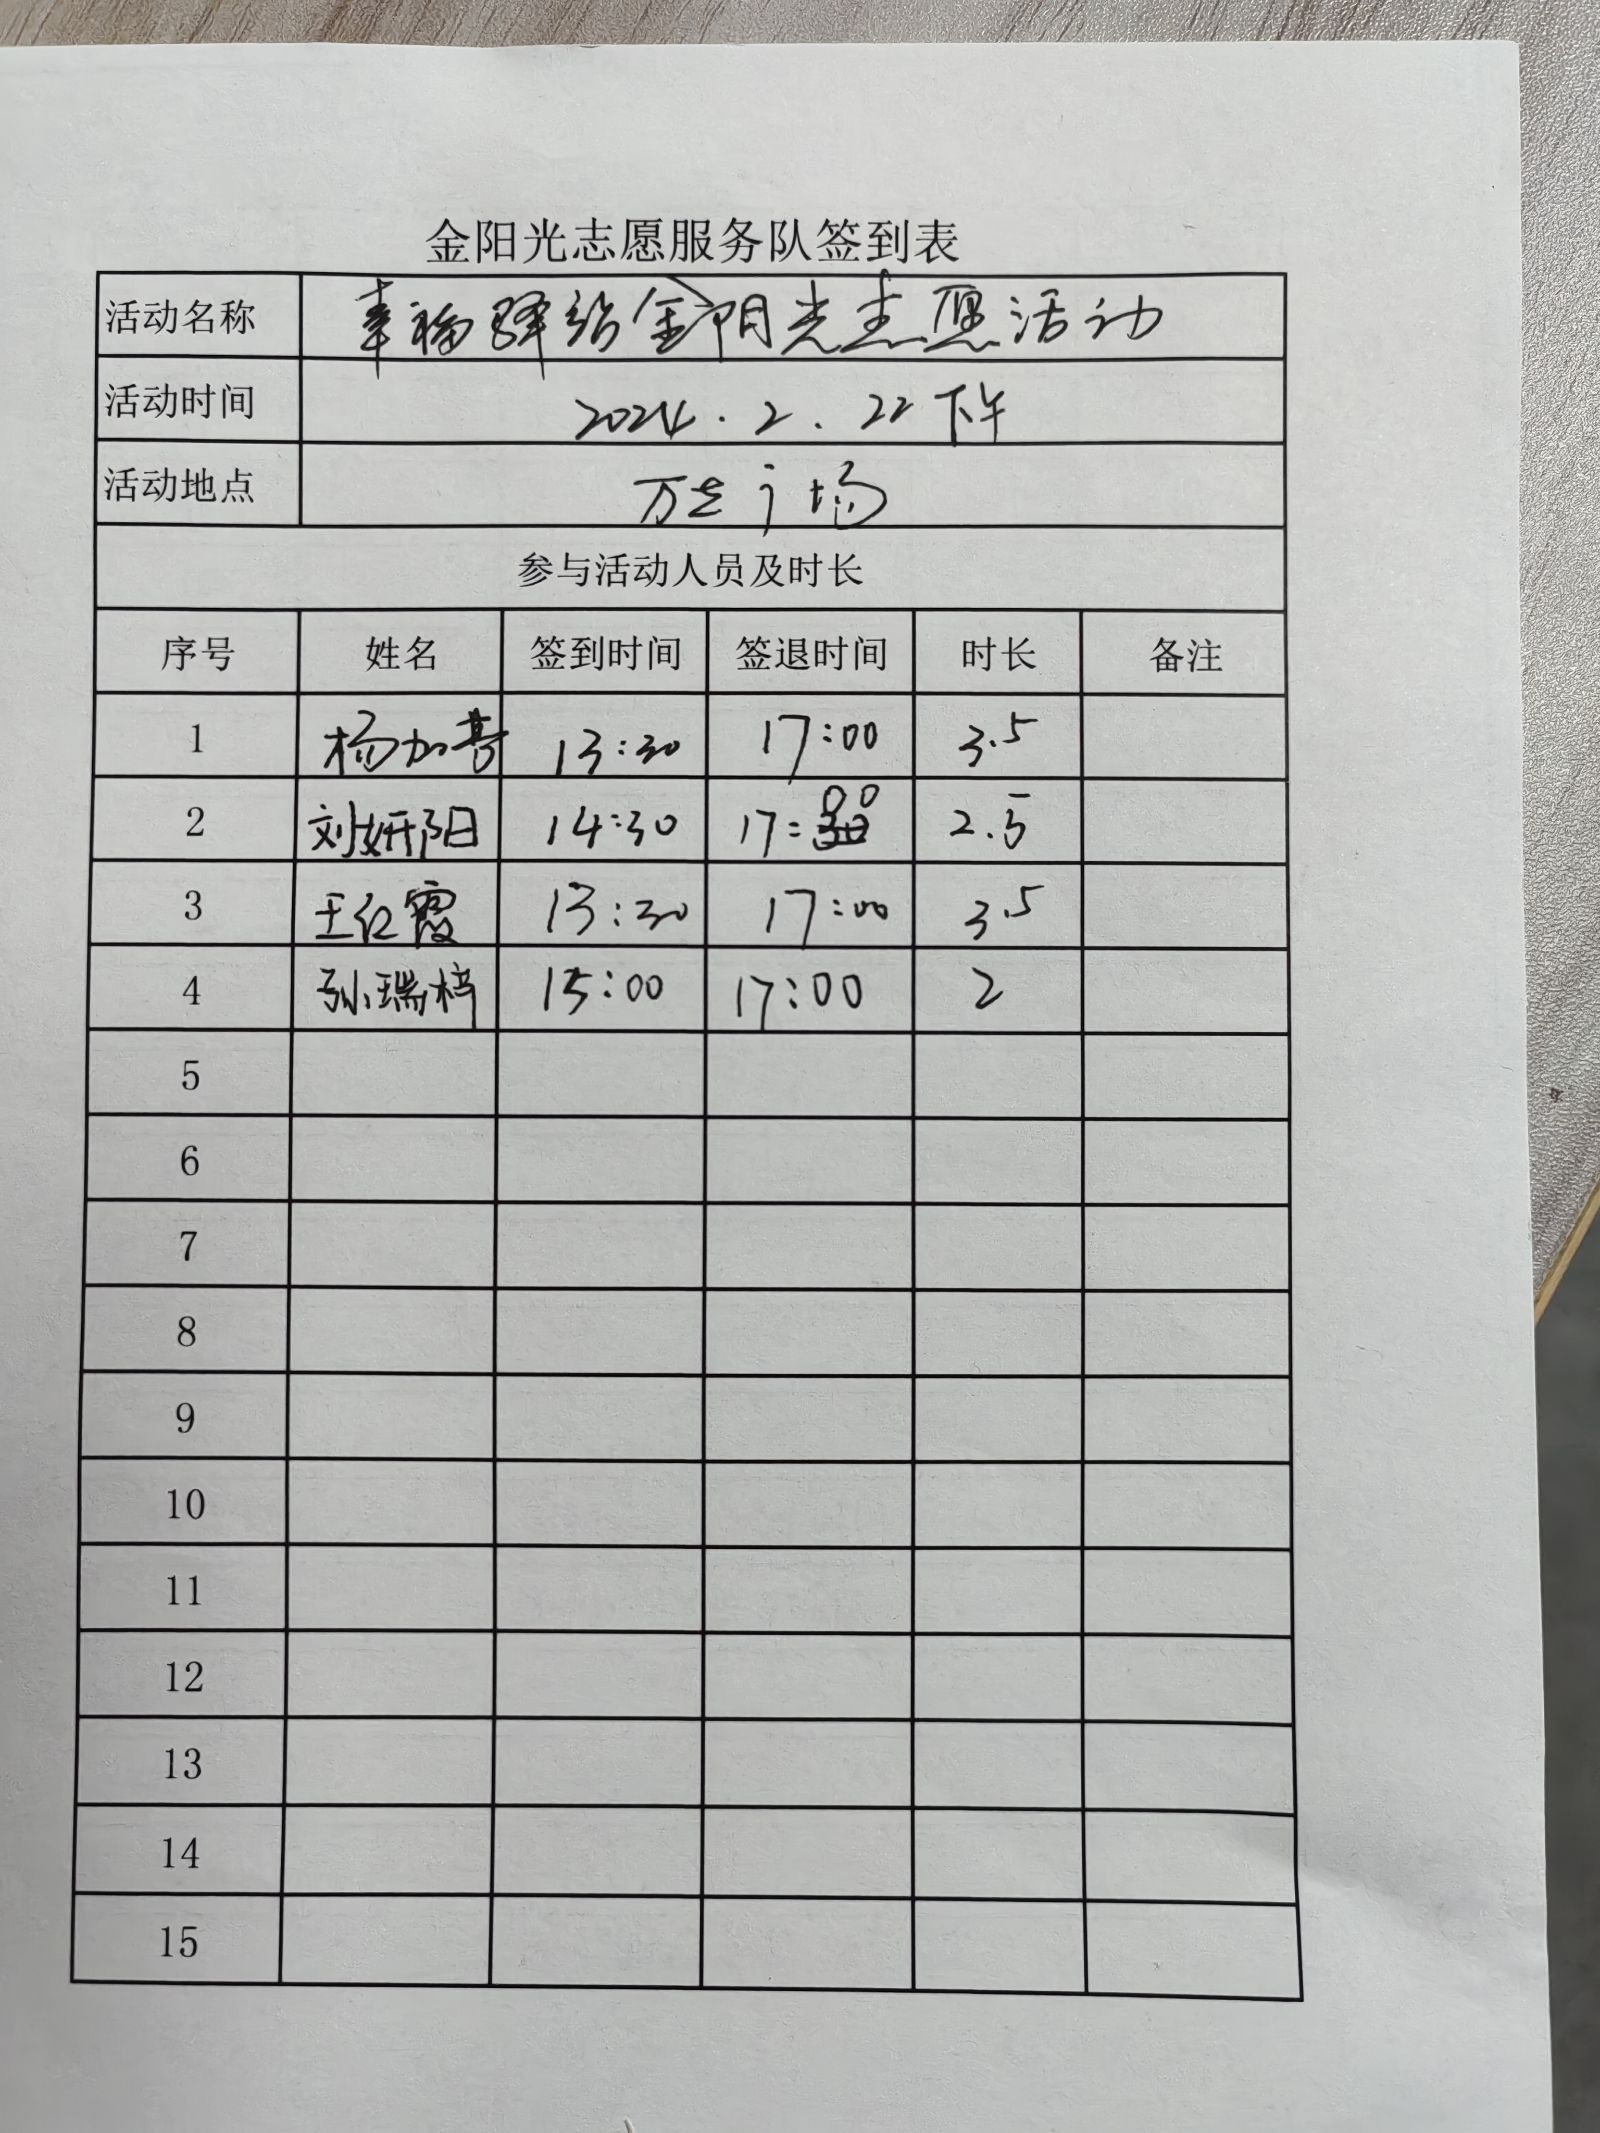 金阳光志愿服务队签到表
活动名称 幸福驿站金阳光志愿活动
活动时间 2024.2.22下午
活动地点 万达广场
参与活动人员及时长
序号 姓名 签到时间 签退时间 时长 备注
1 杨加喜 13:30 17:00 3.5
2 刘妍阳 14:30 17:00 2.5
3 王红霞 13:30 17:00 3.5
4 孙瑞梓 15:00 17:00 2
5
6
7
8
9
10
11
12
13
14
15